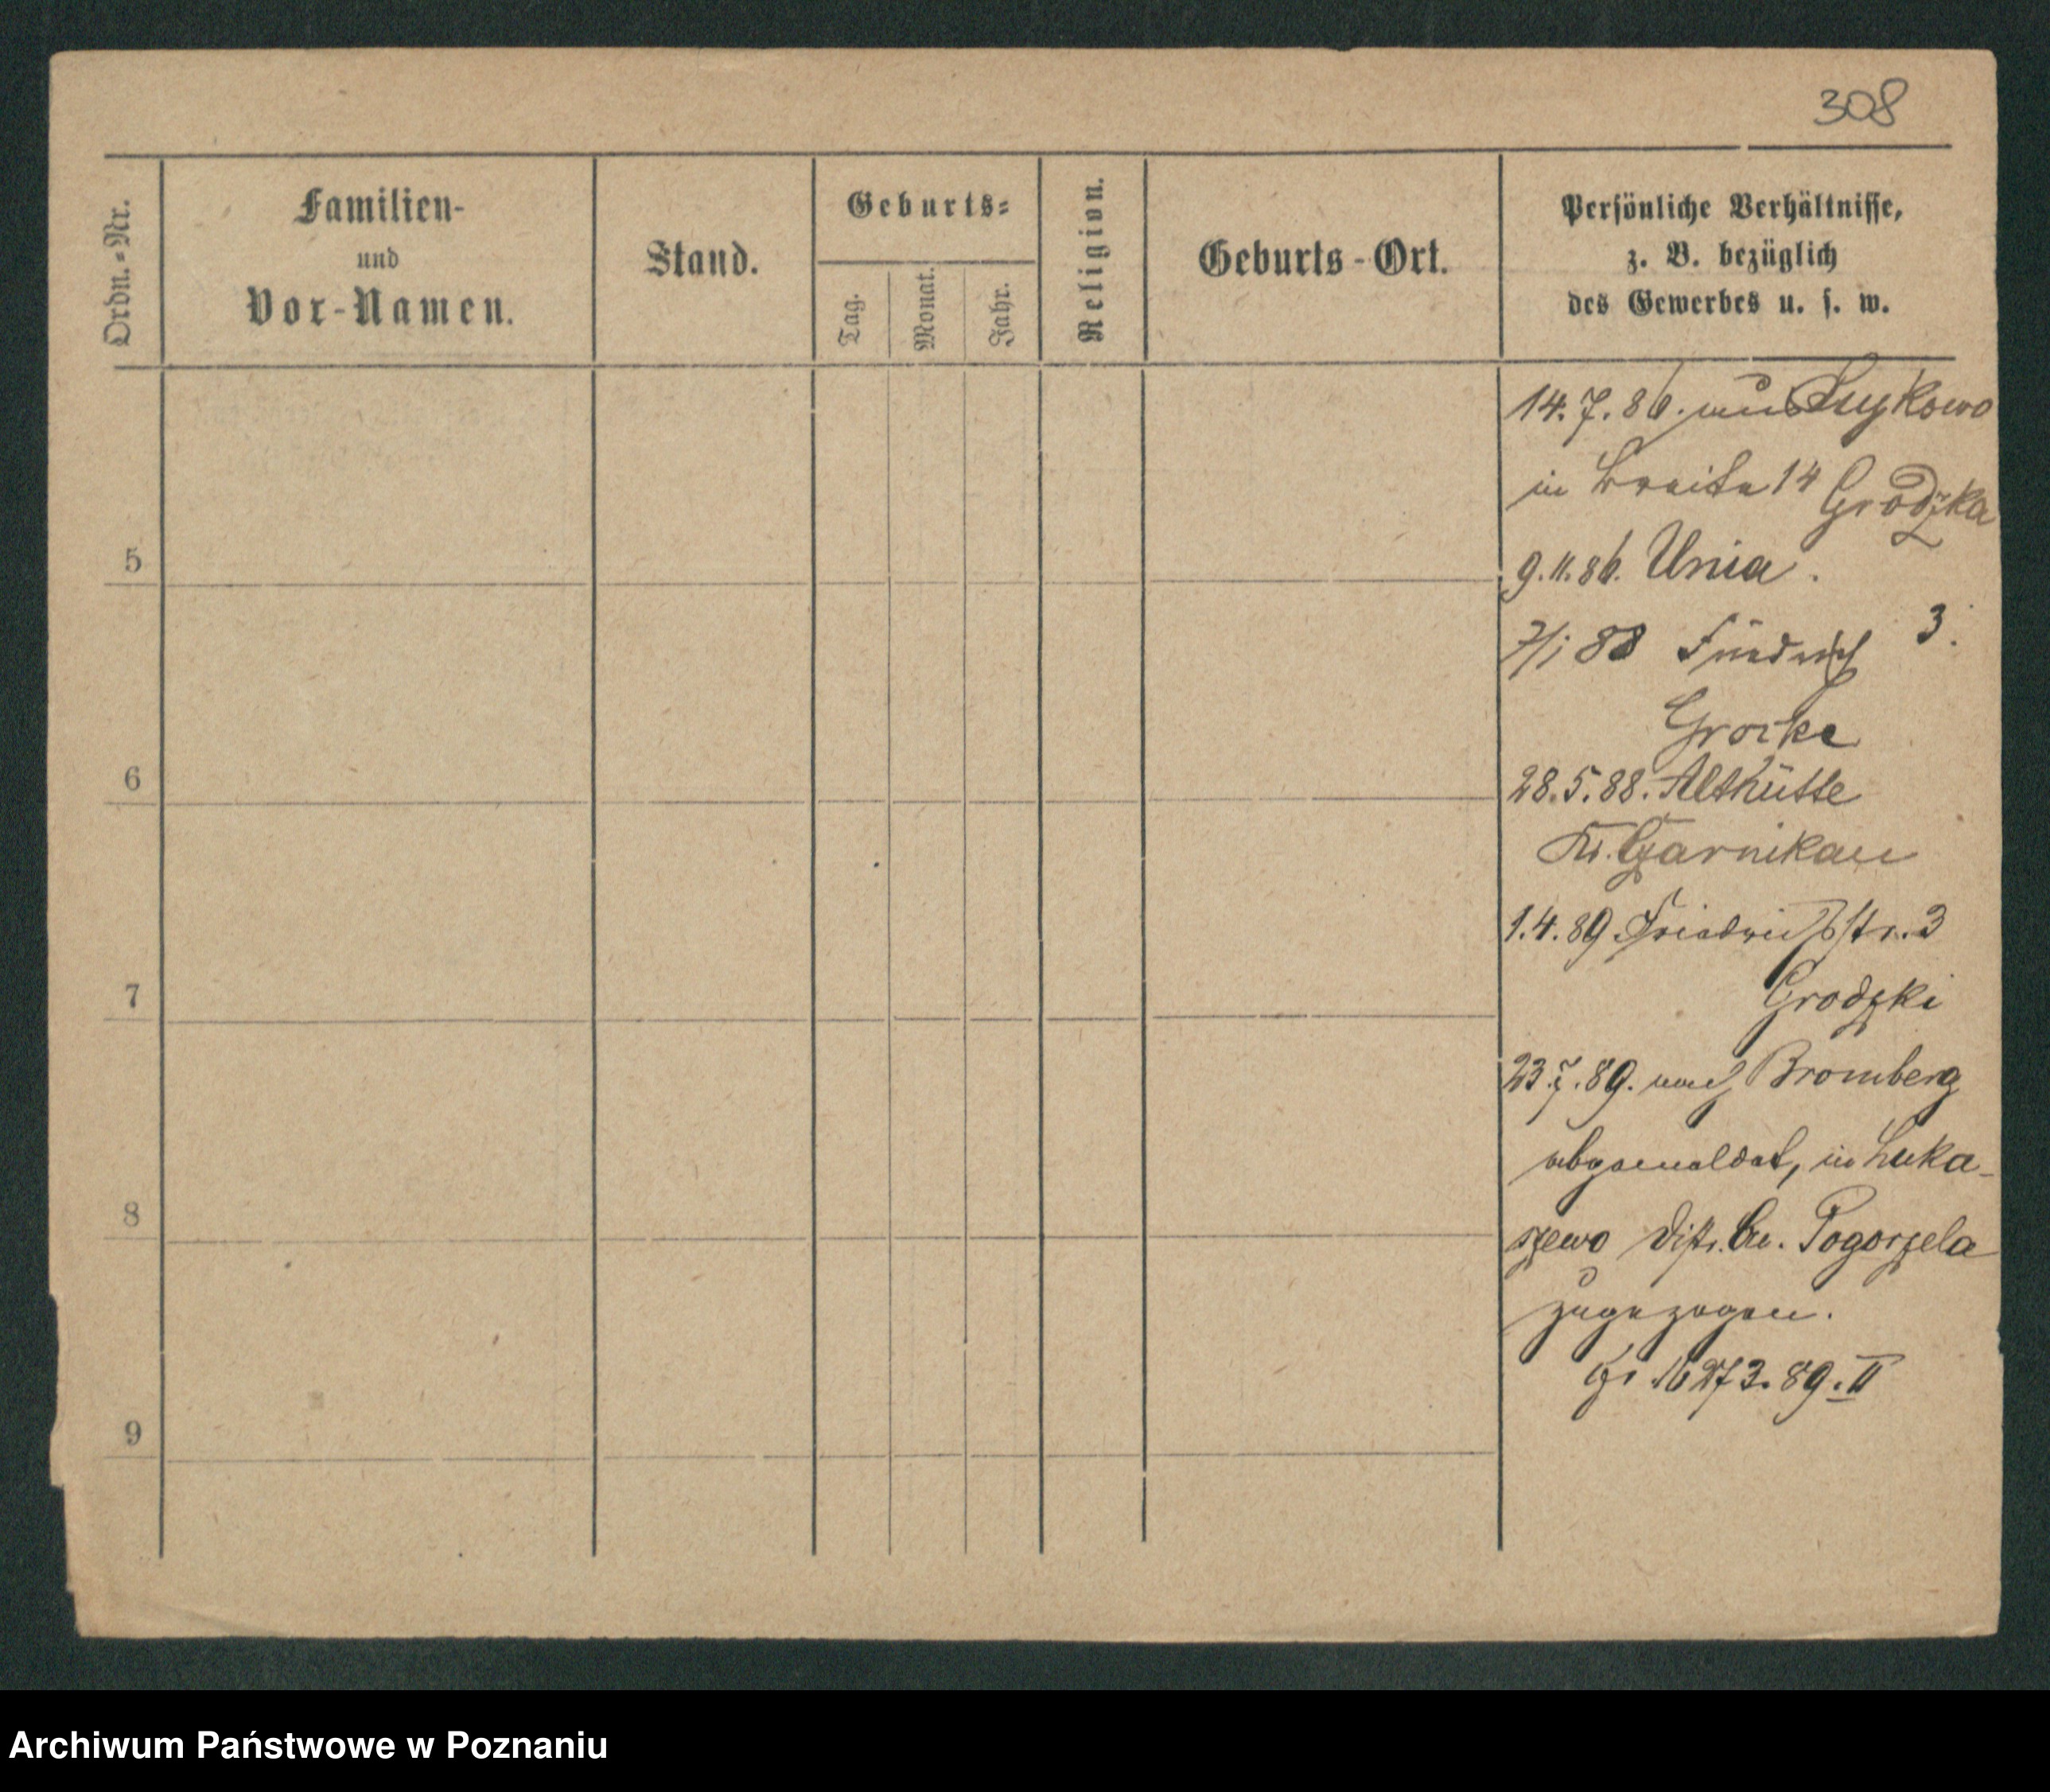 308
Ordn.-Nr.
Familien-
und
Vor-Namen.
Stand.
Geburts-
Tag.
Monat.
Jahr.
Religion.
Geburts-Ort.
Persönliche Verhältnisse,
z. B. bezüglich
des Gewerbes u. s. w.
14.7.86. aus
in Breite 14 Grodzka
5
9.11.86. Unia.
88 Friedrich 3.
Grocke
6
28.5.88. Althütte
Kr. Czarnikau
1.4.89 Friedrichstr. 3
7
Grodzki
23.7.89. nach Bromberg
abgemeldet, in Luka-
8
szewo Distr. Pogorzela
zugezogen.
16273.89.II
9
Archiwum Państwowe w Poznaniu